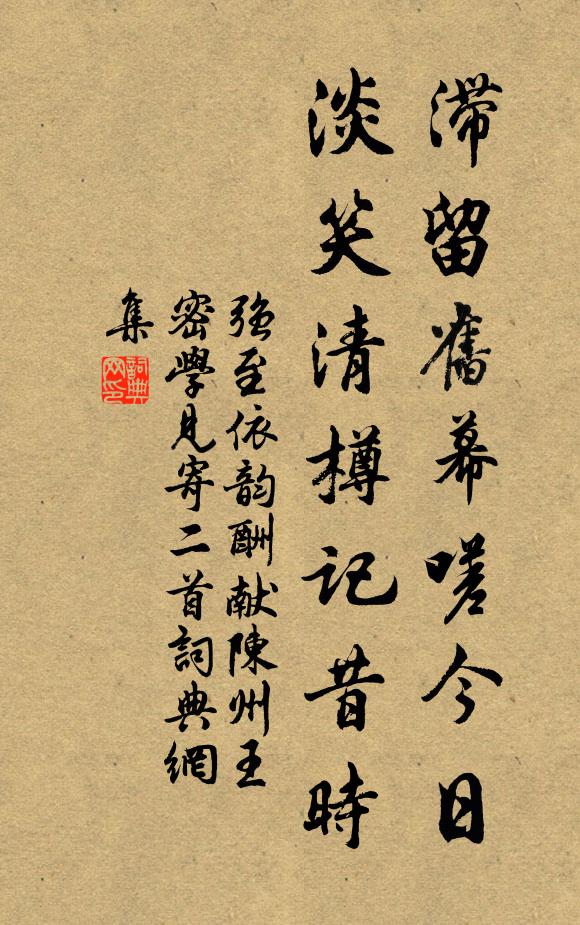 滞留舊幕嗟今日
淡笑清樽記昔時
強至依韵酬献陳州王
密學見寄二首詞典網
集
詞典
网印